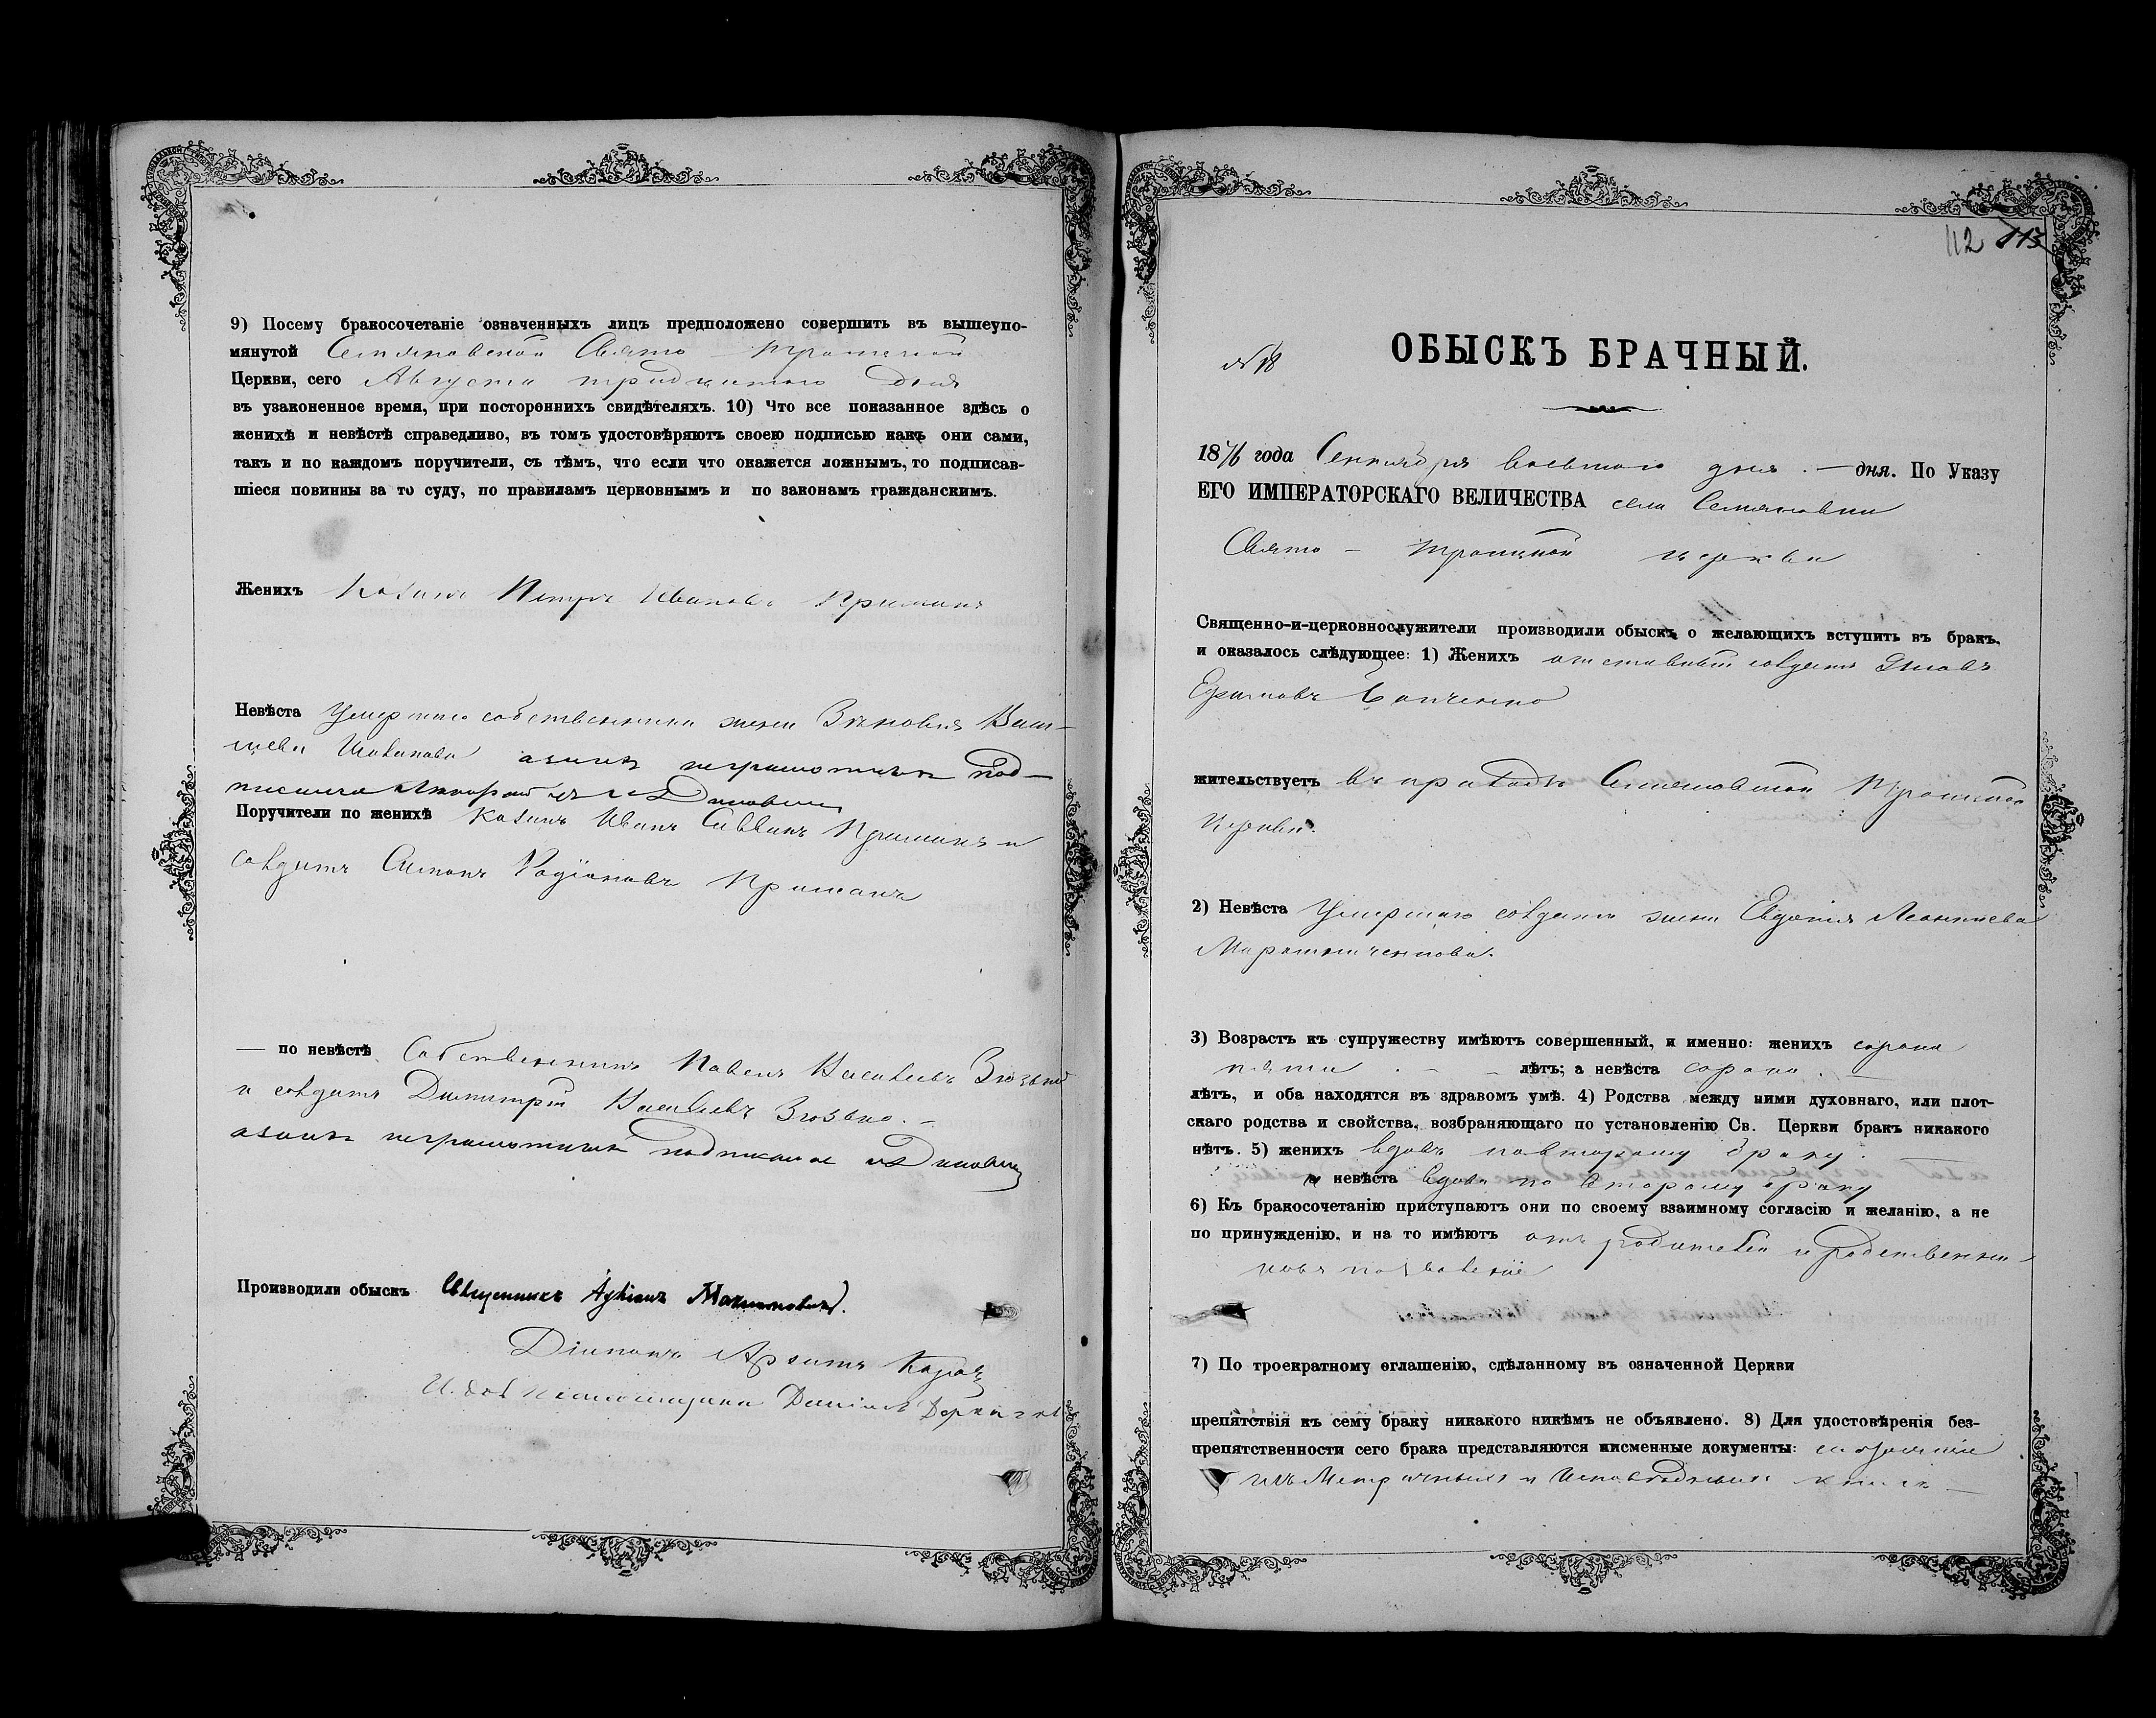 9) Посему бракосочетаніе означенныхъ лицъ предположено совершить въ вышеупо-
мянутой Семяновской Свято – Троицкой
Церкви, сего Августа тридцатого дня
въ узаконенное время, при постороннихъ свидѣтеляхъ. 10) Что все показанное здѣсь о
женихѣ и невѣстѣ справедливо, въ томъ удостовѣряютъ своею подписью какъ они сами,
такъ и по каждомъ поручители, съ тѣмъ, что если что окажется ложнымъ, то подписав-
шіеся повинны за то суду, по правиламъ церковнымъ и по законамъ гражданскимъ.
Женихъ Козакъ Петръ Ивановъ
Невѣста Умершаго собственника жена
неграмотныхъ под-
Поручители по женихѣ Козакъ Иванъ Саввинъ и
солдатъ Родіоновъ
— по невѣстѣ Собственникъ Павелъ Васильевъ
и солдатъ Димитрій Васильевъ
неграмотныхъ
Производили обыскъ Священникъ Максимовичъ.
Діаконъ
И. дол. Даніилъ
112 113
№ 18
ОБЫСКЪ БРАЧНЫЙ.
1876 года Сентября восьмого дня. — дня. По Указу
ЕГО ИМПЕРАТОРСКАГО ВЕЛИЧЕСТВА села Семяновки
Свято – Троицкой церкви
Священно-и-церковнослужители производили обыскъ о желающихъ вступить въ бракъ,
и оказалось слѣдующее: 1) Женихъ отставный солдатъ Яковъ
Ефимовъ
жительствуетъ въ приходѣ Семяновской Троицкой
Церкви.
2) Невѣста Умершаго солдата жена Евдокія Леонтіева
3) Возрастъ къ супружеству имѣютъ совершенный, и именно: женихъ сорока
пяти лѣтъ; а невѣста сорока
лѣтъ, и оба находятся въ здравомъ умѣ. 4) Родства между ними духовнаго, или плот-
скаго родства и свойства, возбраняющаго по установленію Св. Церкви бракъ никакого
нѣтъ. 5) женихъ вдовъ по второму браку.
а невѣста вдова по второму браку
6) Къ бракосочетанію приступаютъ они по своему взаимному согласію и желанію, а не
по принужденію, и на то имѣютъ отъ родителей и родственни-
ковъ позволеніе
7) По троекратному оглашенію, сдѣланному въ означенной Церкви
препятствія къ сему браку никакого никѣмъ не объявлено. 8) Для удостовѣренія без-
препятственности сего брака представляются письменные документы:
изъ Метричныхъ и Исповѣдныхъ книгъ —